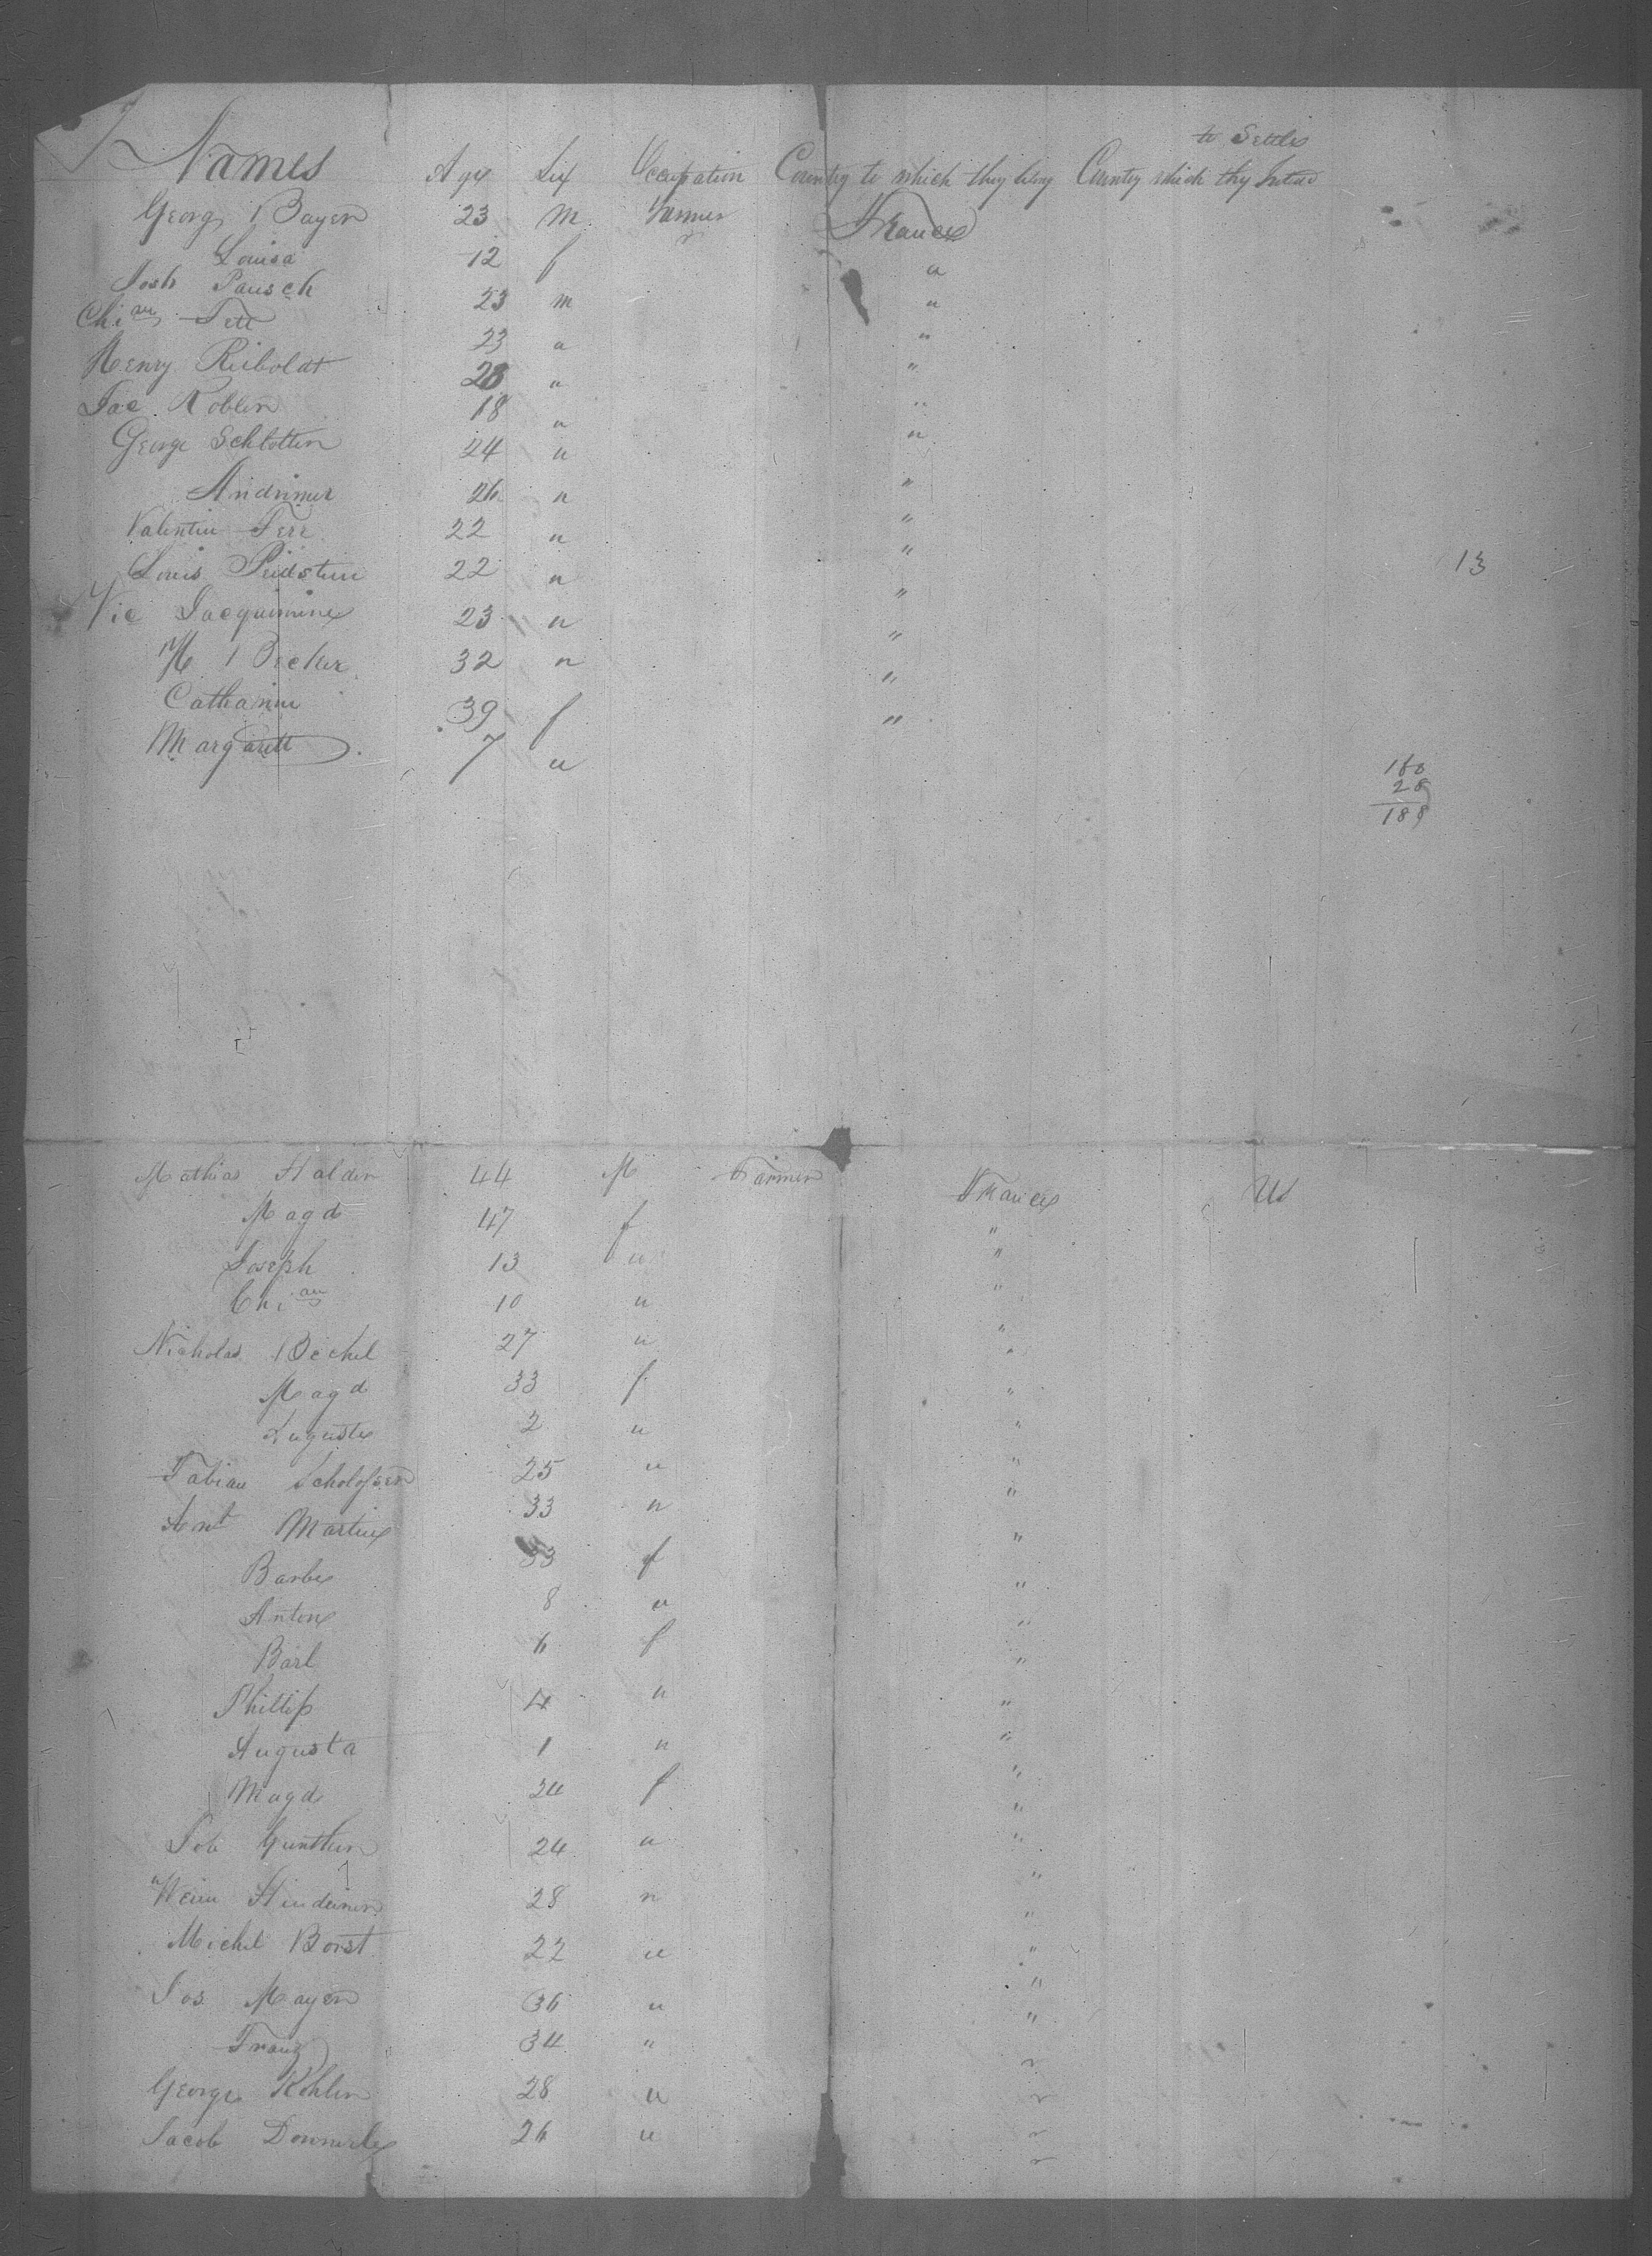 to Settle
Names Age Sex Occupation Country to which they belong Country which they Intend
George Bayer 23 M Farmer France
Louisa 12 f "
Josh Pausch 23 m "
Chian Fett 23 " "
Henry Reiboldt 28 " "
Jac Kobler 18 " "
George Schlotter 24 " "
26 " "
Valentin Ferr 22 " "
Louis 22 " "
13
Vic Jacquimine 23 " "
M Becker 32 " "
Catharine 39 f "
Margarett 7 " "
160
28
188
Mathias Halder 44 M Farmer France US
Magd 47 f "
Joseph 13 " "
Chian 10 " "
Nicholas Bechel 27 " "
Magd 33 f "
Auguste 2 " "
Fabian Scholosser 25 " "
Ant Martine 33 " "
Barbe 33 f "
Antone 8 " "
Barb 6 f "
Phillip 4 " "
Augusta 1 " "
Magd 24 f "
Job Gunther 24 " "
28 " "
Michel Borst 22 " "
Jos Mayer 36 " "
Franz 34 " "
George Kohler 28 " "
Jacob Donnerle 26 " "